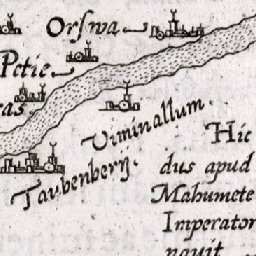 Orſwa
Pctie
as
Viminallum.
Taubenberĳ.
Hic
dus apud
Mahumete
Imperator
nauit